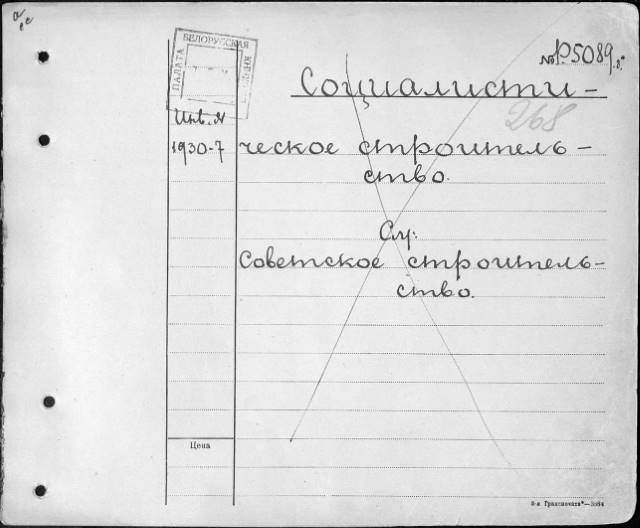 № P.5089.
БЕЛОРУССКАЯ
ПАЛАТА
Социалисти-
268
Инв. №
1930-7 ческое строитель-
ство.
См:
Советское строитель-
ство.
Цена